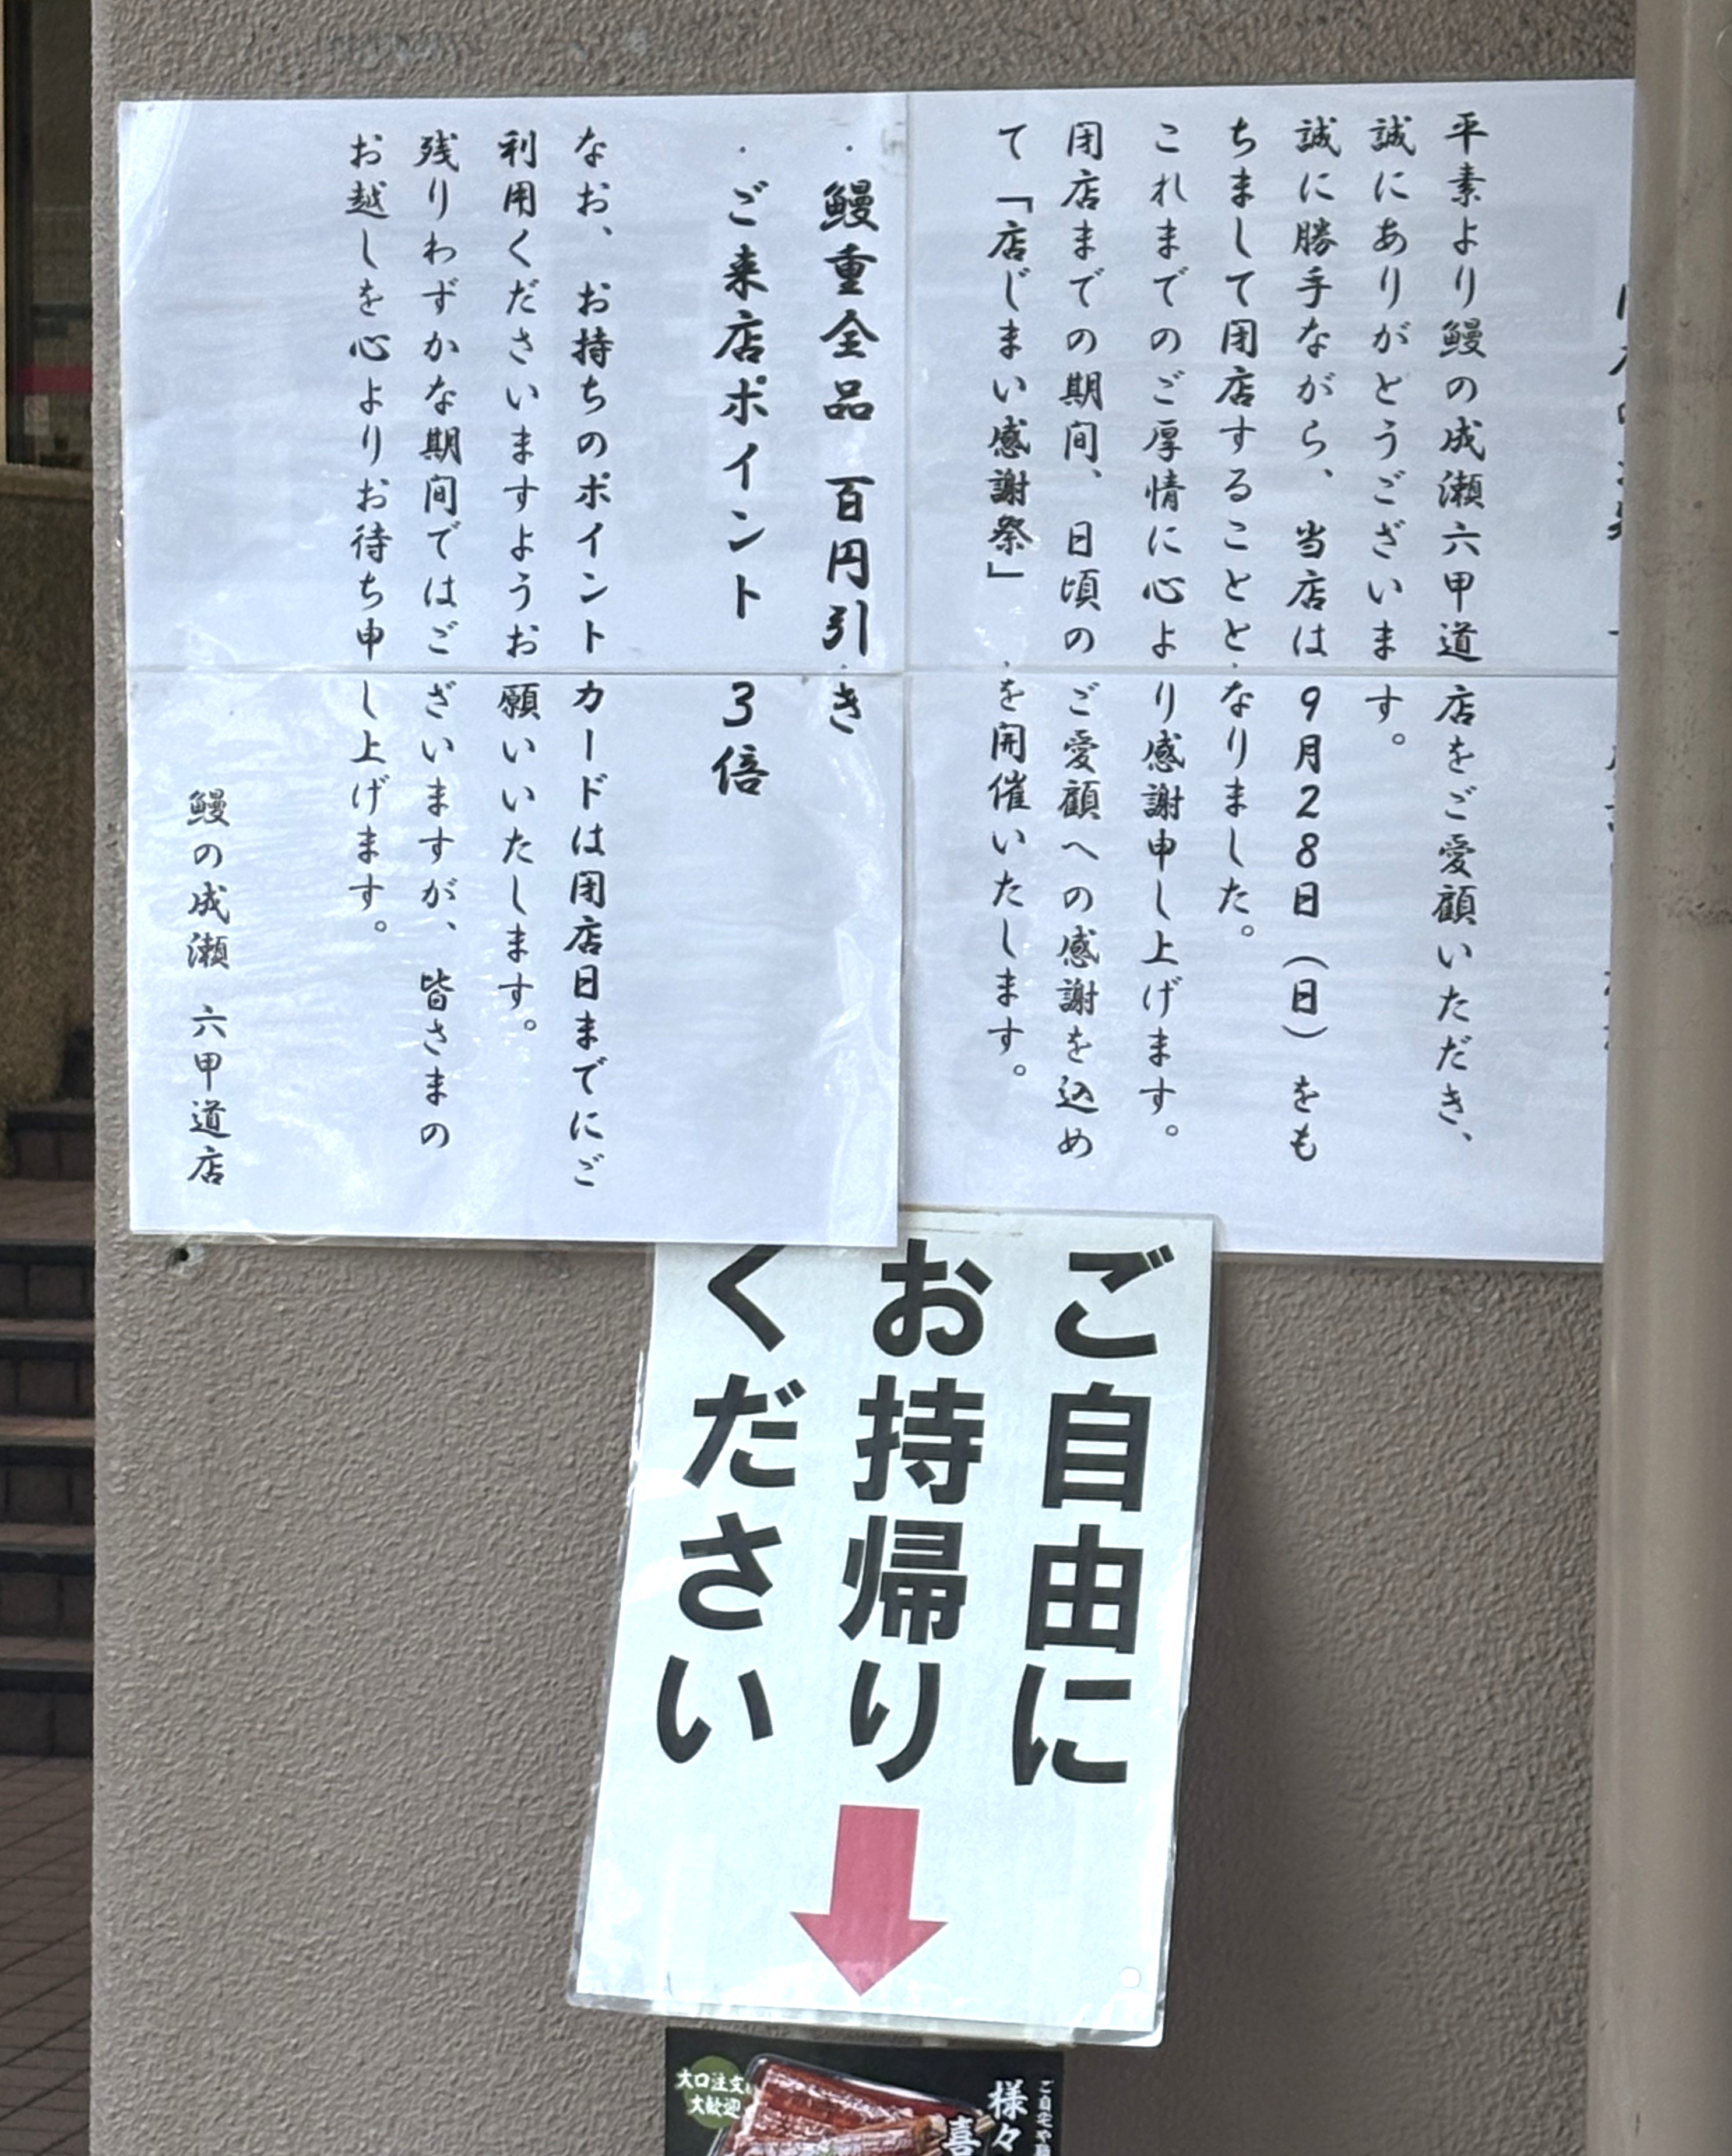 平素より鰻の成瀬六甲道店をご愛顧いただき、
誠にありがとうございます。
誠に勝手ながら、当店は9月28日(日)をも
ちまして閉店することとなりました。
これまでのご厚情に心より感謝申し上げます。
閉店までの期間、日頃のご愛顧への感謝を込め
て「店じまい感謝祭」を開催いたします。
・鰻重全品 百円引き
・ご来店ポイント 3倍
なお、お持ちのポイントカードは閉店日までにご
利用くださいますようお願いいたします。
残りわずかな期間ではございますが、皆さまの
お越しを心よりお待ち申し上げます。
鰻の成瀬 六甲道店
ご自由に
お持帰り
ください
大口注文
大歓迎
ご自宅や
様々
喜